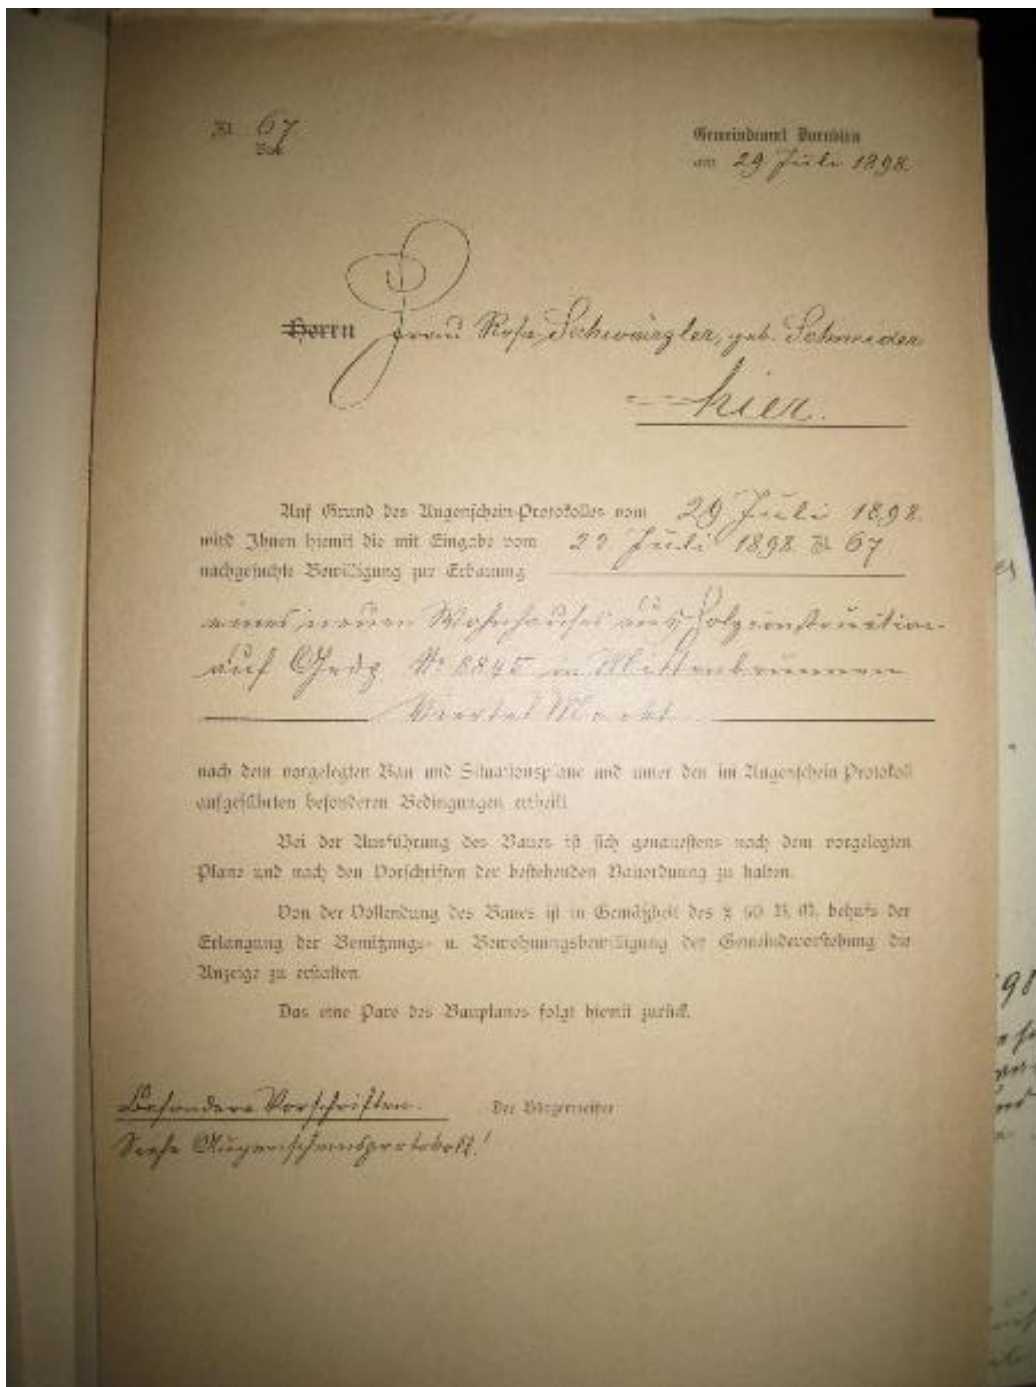 Zl. 67
Bau
Gemeindeamt Dornbirn
am 29 Juli 1898
Herrn Frau Rosa Schwärzler, geb. Schneider
hier.
Auf Grund des Augenschein-Protokolles vom 29 Juli 1898.
wird Ihnen hiemit die mit Eingabe vom 29 Juli 1898 Zl. 67
nachgesuchte Bewilligung zur Erbauung
eines neuen Wohnhauses aus Holzconstruction
auf Grdz No 8845 in Mittenbrunnen
Viertel Markt
nach dem vorgelegten Bau und Situationsplane und unter den im Augenschein Protokoll
aufgeführten besonderen Bedingungen ertheilt.
Bei der Ausführung des Baues ist sich genauestens nach dem vorgelegten
Plane und nach den Vorschriften der bestehenden Bauordnung zu halten.
Von der Vollendung des Baues ist in Gemäßheit des § 60 B. O. behufs der
Erlangung der Benützungs- u. Bewohnungsbewilligung der Gemeindevorstehung die
Anzeige zu erstatten.
Das eine Pare des Bauplanes folgt hiemit zurück.
Besondere Vorschriften.
Der Bürgermeister
Siehe Augenscheinsprotokoll!